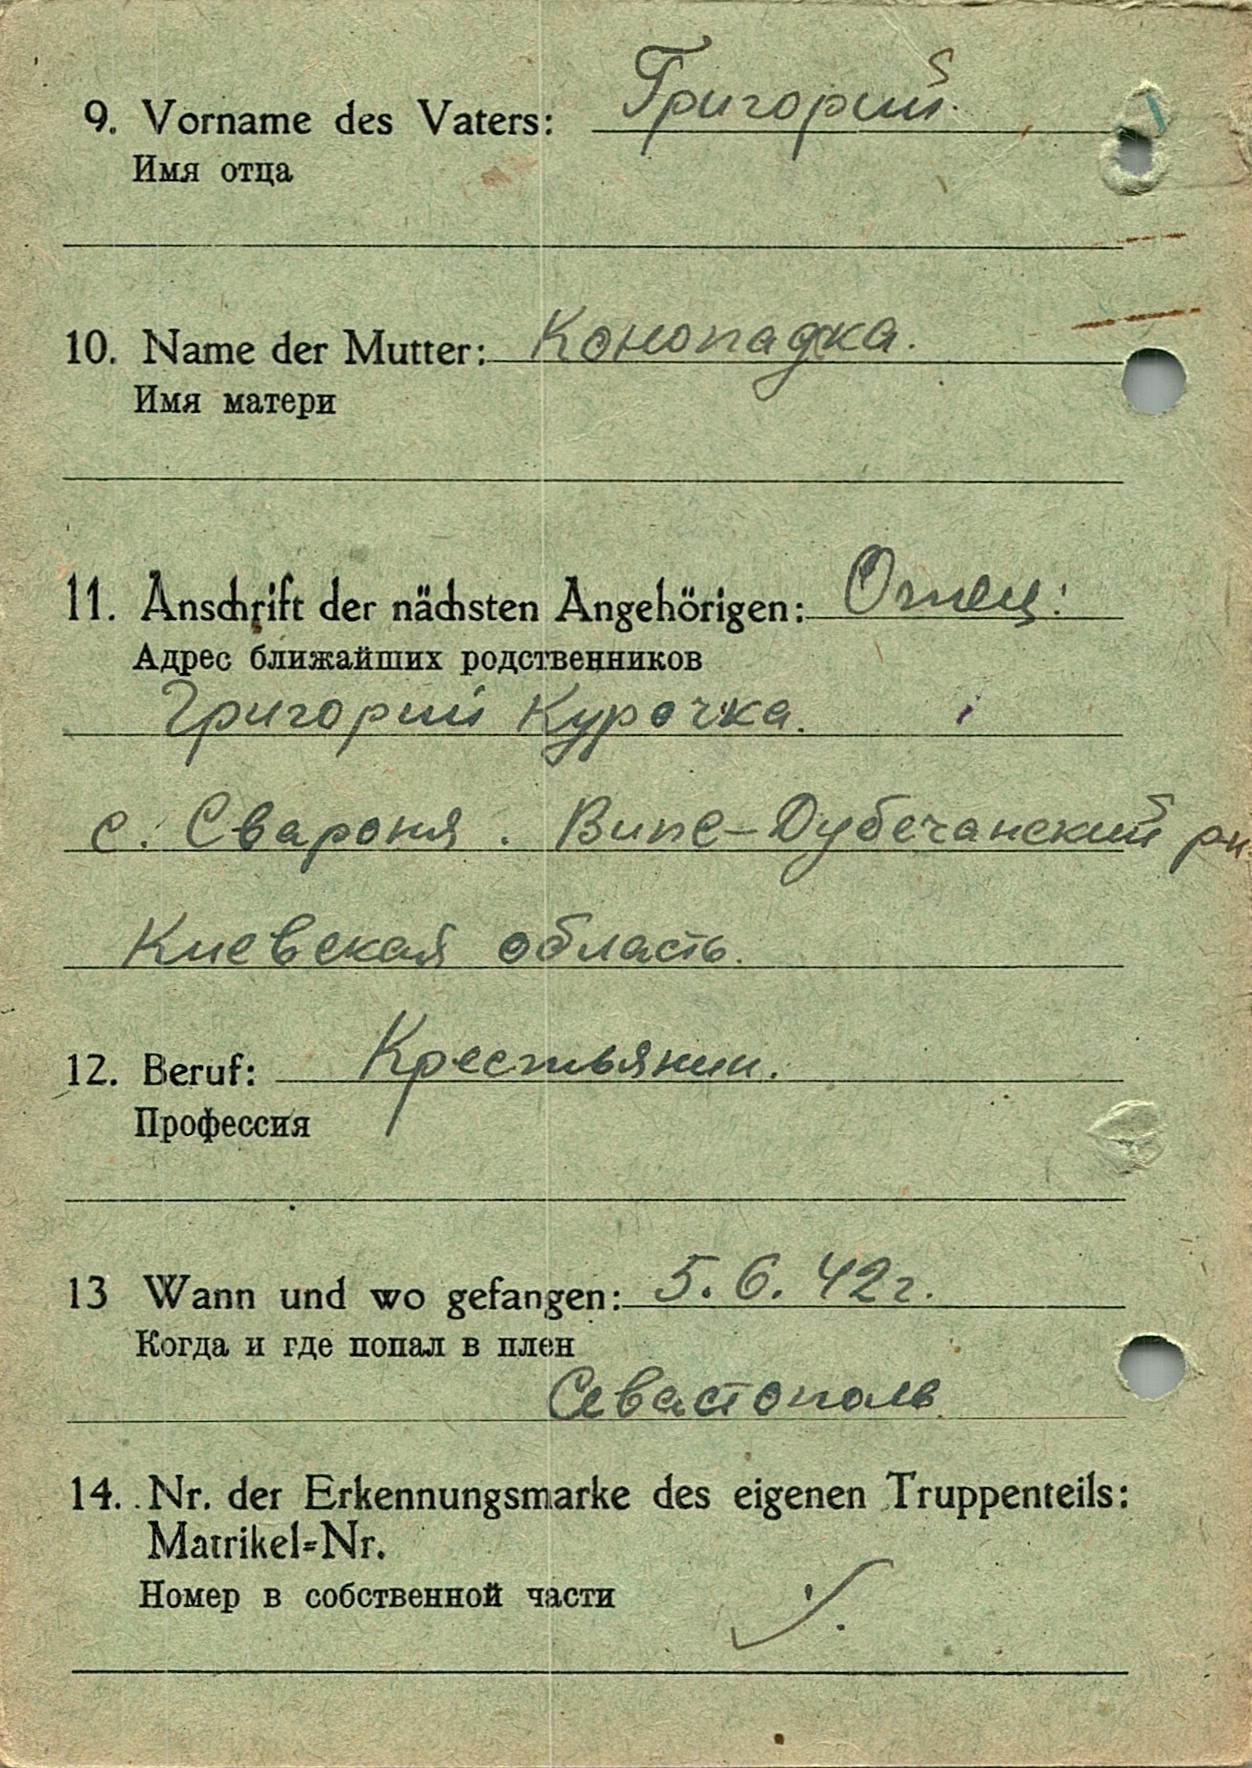 9. Vorname des Vaters: Григорий.
Имя отца
10. Name der Mutter: Конопадка.
Имя матери
11. Anschrift der nächsten Angehörigen: Отец:
Адрес ближайших родственников
Григорий Курочка.
с. Свароня. Випе-Дубечанский рн.
Киевская область.
12. Beruf: Крестьянин.
Профессия
13 Wann und wo gefangen: 5.6.42г.
Когда и где попал в плен
Севастополь
14. Nr. der Erkennungsmarke des eigenen Truppenteils:
Matrikel=Nr.
Номер в собственной части